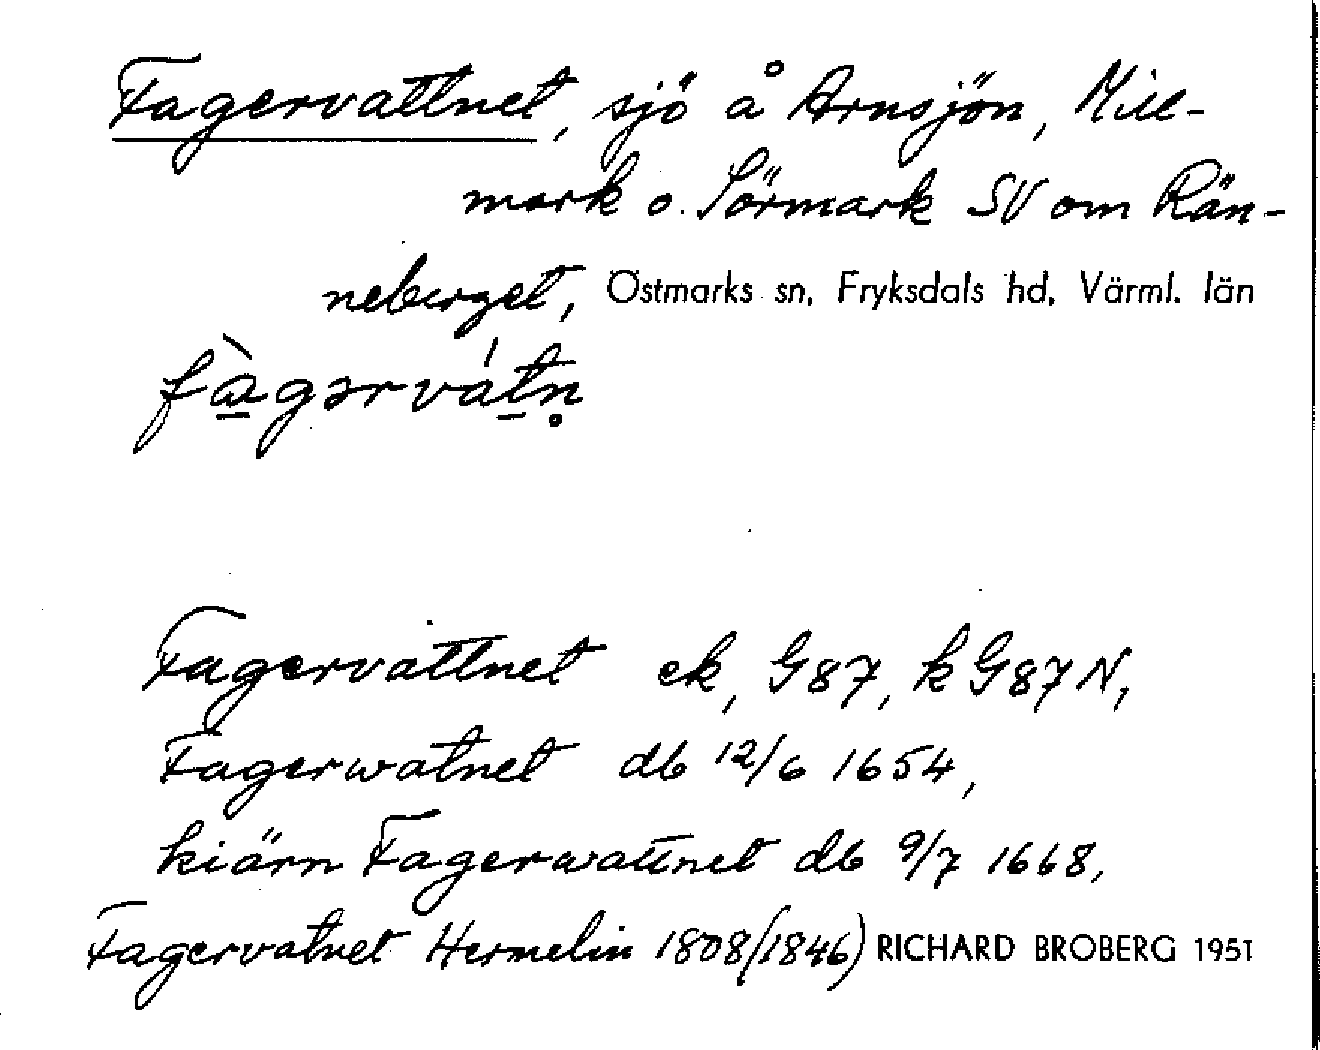 Fagervattnet, sjö å Arnsjön, Mill-
mark o. Sörmark SV om Rän-
neberget, Östmarks sn, Fryksdals hd, Värml. län
fàgərvátn̥
Fagervattnet ek, G87, kG87N,
Fagerwatnet db 12/6 1654,
kiärn Fagerwattnet db 9/7 1668,
Fagervatnet Hermelin 1808/(1846) RICHARD BROBERG 1951